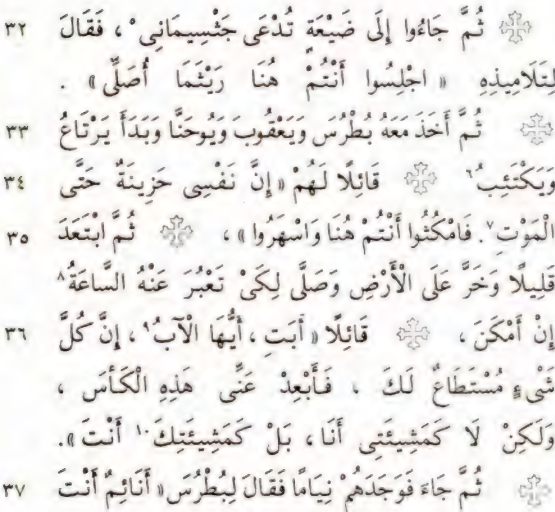 ثُمَّ جَاءُوا إِلَى ضَيْعَةٍ تُدْعَى جَثْسِيمَانِى ⁵ ، فَقَالَ ٣٢
لِتَلَامِيذِهِ « اجْلِسُوا أَنْتُمْ هُنَا رَيْثَمَا أُصَلِّى » .
ثُمَّ أَخَذَ مَعَهُ بُطْرُسَ وَيَعْقُوبَ وَيُوحَنَّا وَبَدَأَ يَرْتَاعُ ٣٣
وَيَكْتَئِبُ ٦ قَائِلًا لَهُمْ « إِنَّ نَفْسِى حَزِينَةٌ حَتَّى ٣٤
الْمَوْتِ ٧ . فَامْكُثُوا أَنْتُمْ هُنَا وَاسْهَرُوا » ، ثُمَّ ابْتَعَدَ ٣٥
قَلِيلًا وَخَرَّ عَلَى الْأَرْضِ وَصَلَّى لِكَىْ تَعْبُرَ عَنْهُ السَّاعَةُ ٨
إِنْ أَمْكَنَ ، قَائِلًا « أَبَتِ ، أَيُّهَا الْآبُ ٩ ، إِنَّ كُلَّ ٣٦
شَىْءٍ مُسْتَطَاعٌ لَكَ ، فَأَبْعِدْ عَنِّى هَذِهِ الْكَأْسَ ،
وَلَكِنْ لَا كَمَشِيئَتِى أَنَا ، بَلْ كَمَشِيئَتِكَ ١٠ أَنْتَ » .
ثُمَّ جَاءَ فَوَجَدَهُمْ نِيَامًا فَقَالَ لِبُطْرُسَ « أَنَائِمٌ أَنْتَ ٣٧